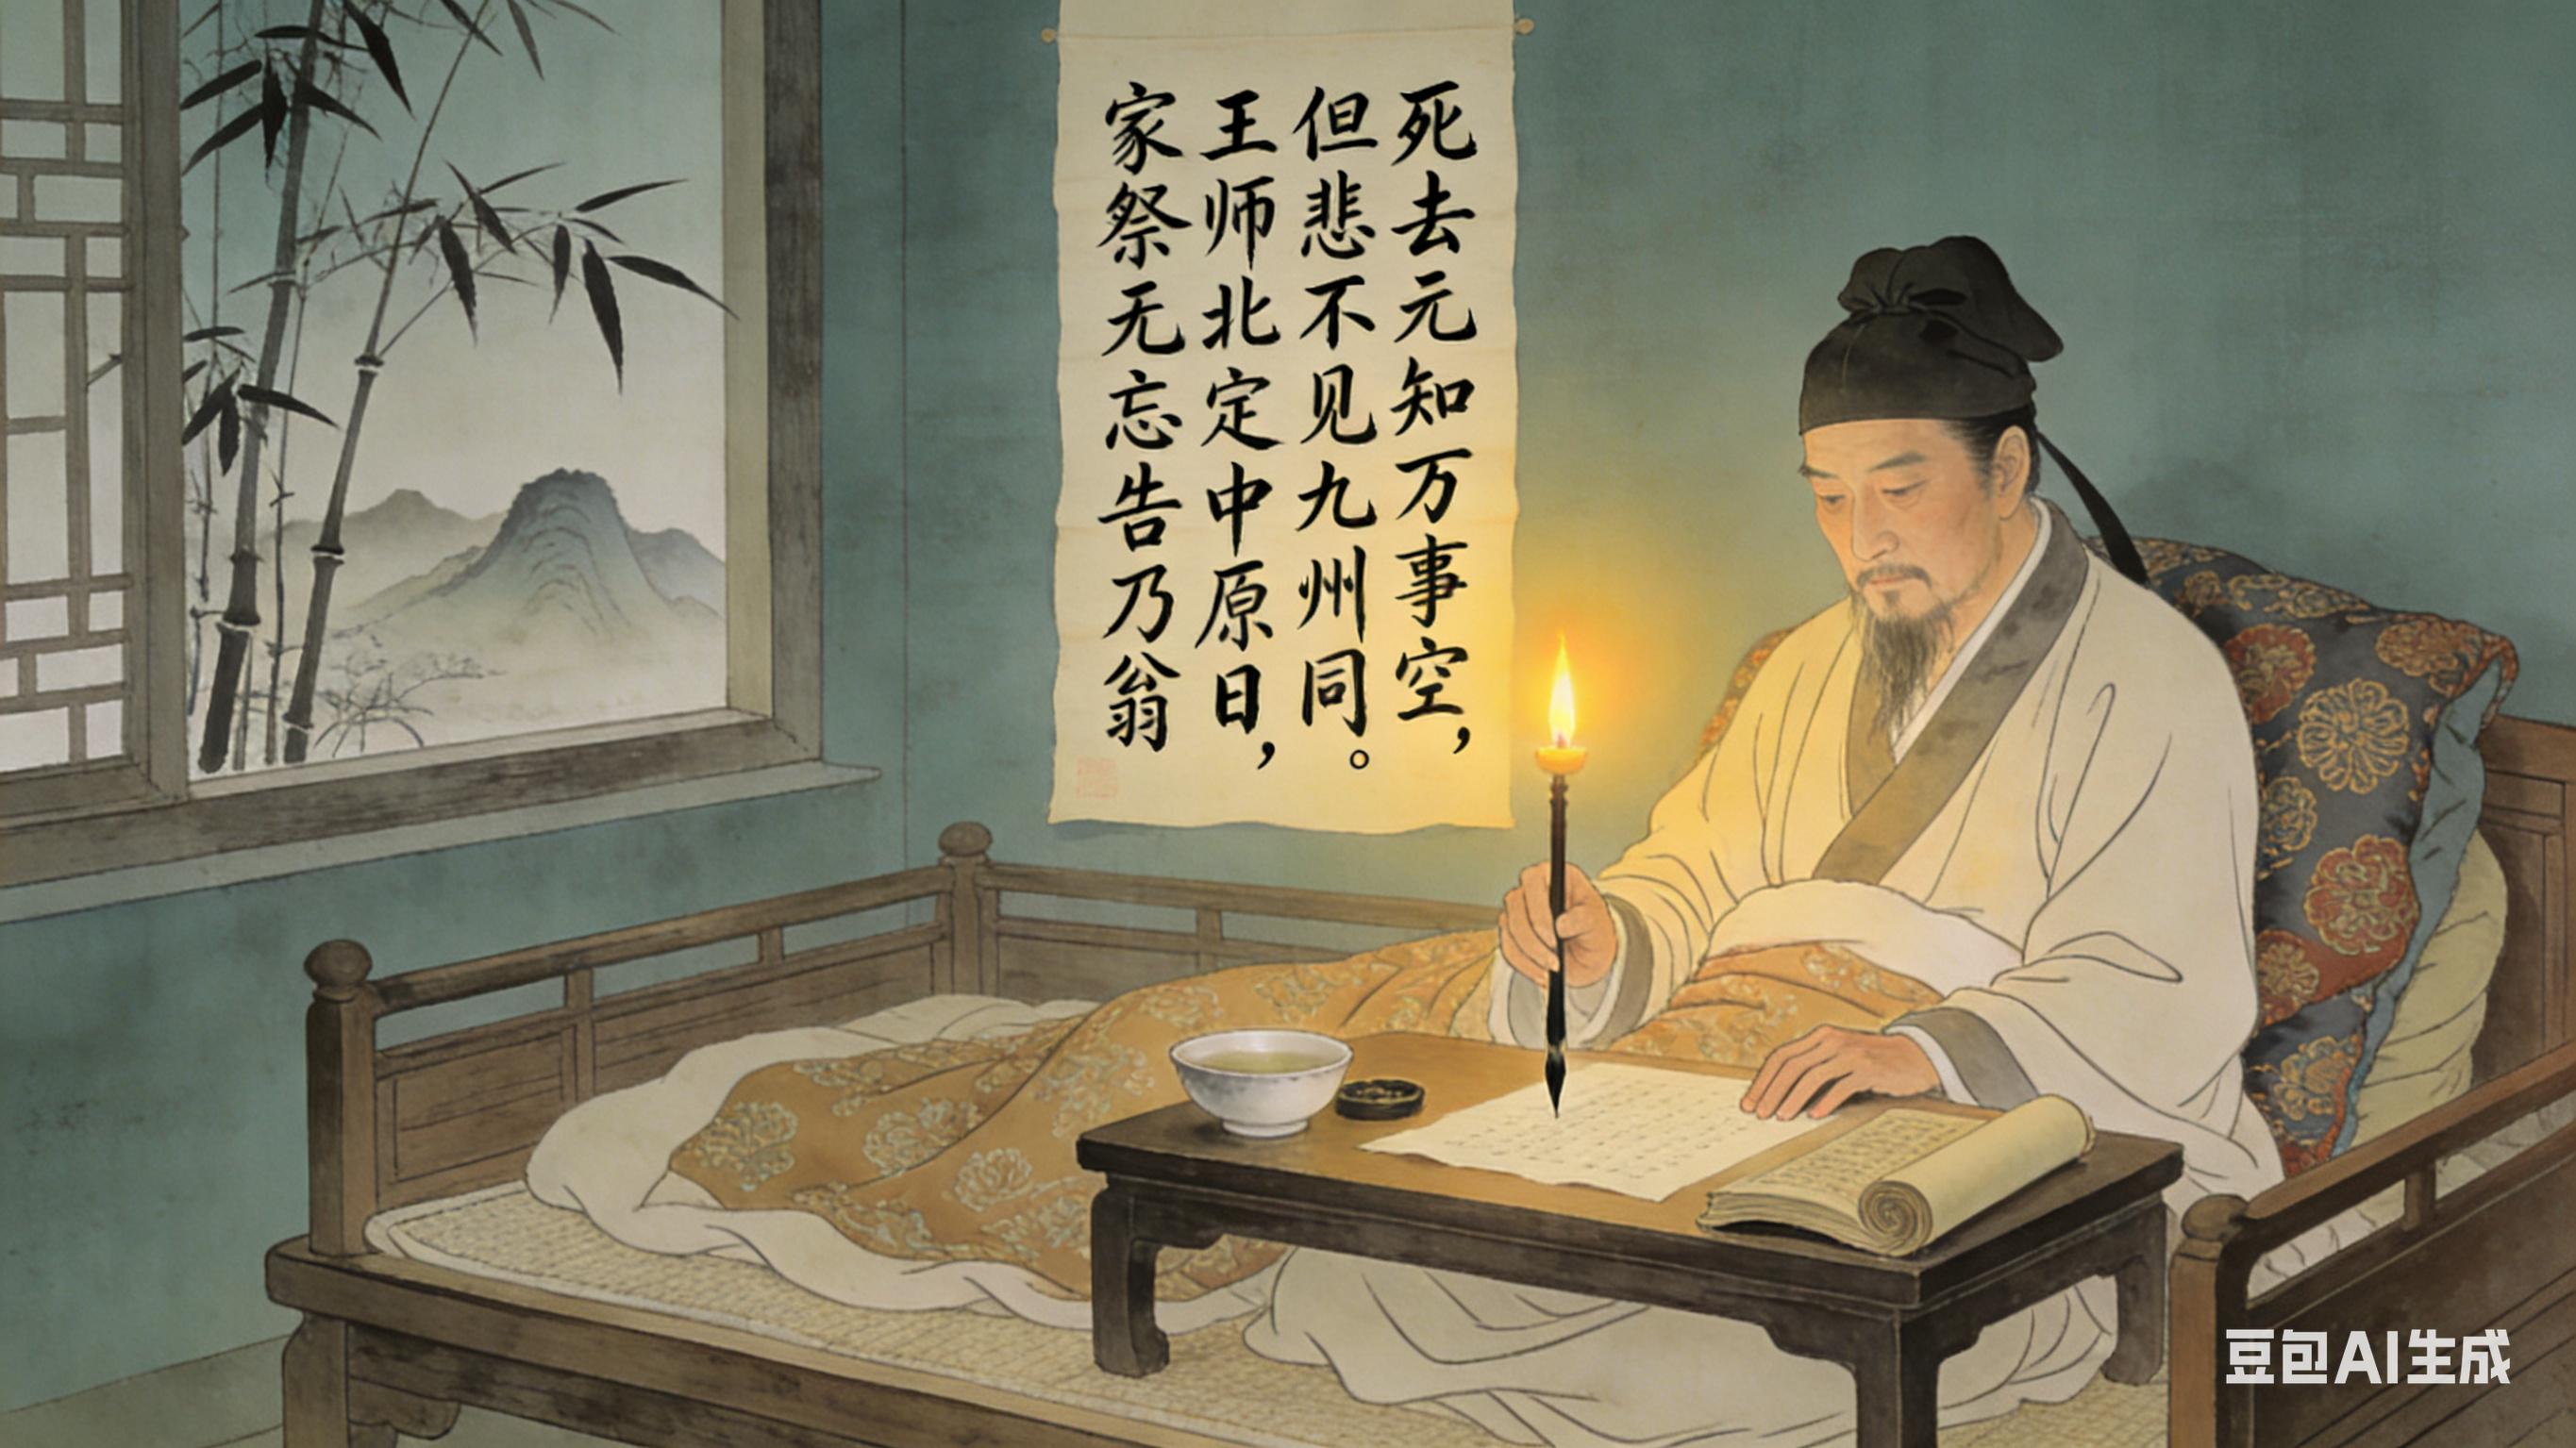 死去元知万事空，
但悲不见九州同。
王师北定中原日，
家祭无忘告乃翁
豆包AI生成